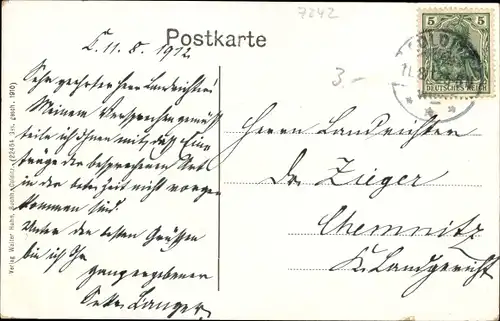 7242
Postkarte
L. 11. 8. 1912
3.-
5 5
DEUTSCHES REICH
Sehr geehrter Herr Landrichter!
Meinem Versprechen gemäß
teile ich Ihnen mit, daß Ein-
träge der besprochenen Art
in der letzten Zeit nicht vorge-
kommen sind.
Unter den besten Grüßen
bin ich Ihr
ganz ergebener
Sekr. Langer.
Herrn Landrichter
Dr. Zieger
Chemnitz
K. Landgericht
Verlag Walter Hahn,
(22454 Ges. gesch. 1910)